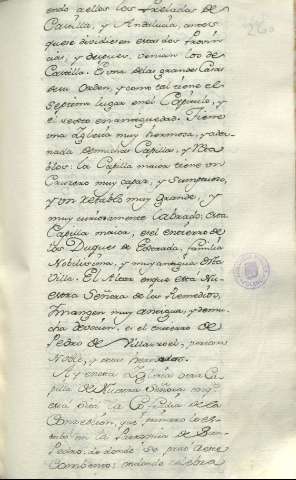 endo a ellos los Prelados de
Castilla, y Andalucia, antes
que se dividiesen estas dos Provin
cias, y despues, venian los de
Castilla. Es una de las grandes Casas
de su Orden, y como tal tiene el
septimo lugar en el Capitulo, y
el sexto en antiguedad. Tiene
una Iglesia muy hermosa, y ador
nada de muchas Capillas, y Reta
blos: la Capilla maior tiene un
Cruzero muy capaz, y sumptuoso,
y un retablo muy grande, y
muy curiosamente labrado; esta
Capilla maior, es el entierro de
los Duques de Estrada, familia
Nobilissima, y muy antigua de esta
Villa. El Altar en que está Nu
estra Señora de los Remedios,
Imangen muy antigua, y de mu
cha devocion, es el entierro de
Pedro de Villarroel, persona
Noble, y estos herederos.
Ay en esta Iglesia otra Ca
pilla de Nuestra Señora en q.
está sita la Cofradia de la
Concepcion, que primero lo es
tubo en la Parroquia de San
Pedro, de donde se pasó a este
Combento; quando